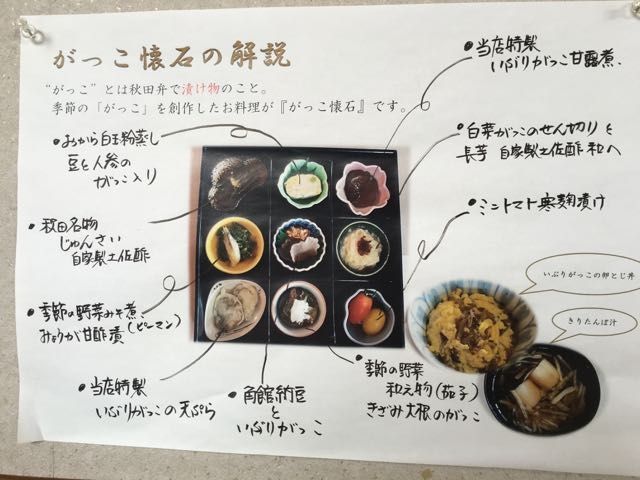 がっこ懐石の解説
"がっこ"とは秋田弁で漬け物のこと。
季節の「がっこ」を創作したお料理が『がっこ懐石』です。
・おから白玉粉蒸し
豆と人参の
がっこ入り
・秋田名物
じゅんさい
自家製土佐酢
・季節の野菜みそ煮
みょうが甘酢漬(ピーマン)
・当店特製
いぶりがっこの天ぷら
・角館納豆
と
いぶりがっこ
・季節の野菜
和え物(茄子)
きざみ大根のがっこ
・当店特製
いぶりがっこ甘露煮
・白菜がっこのせん切りと
長芋 自家製土佐酢和へ
・ミニトマト寒麹漬け
いぶりがっこの卵とじ丼
きりたんぽ汁